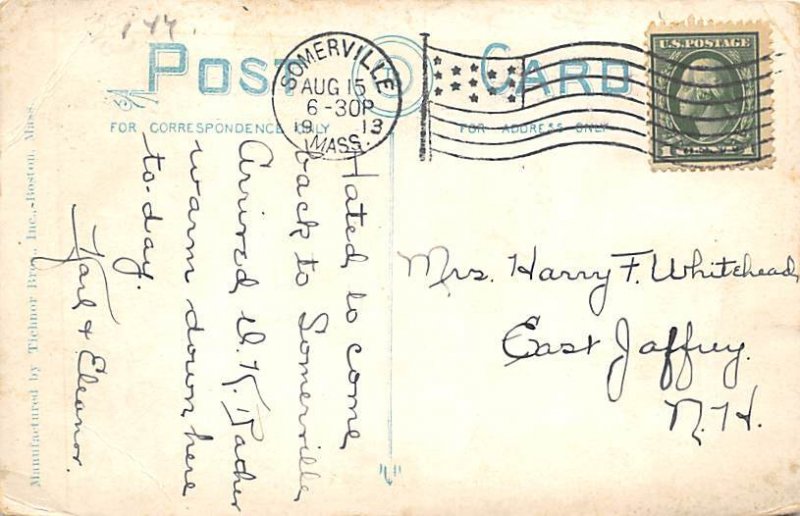 144.
POST CARD
FOR CORRESPONDENCE ONLY
FOR ADDRESS ONLY
SOMERVILLE
AUG 15
6-30P
1913
MASS.
U.S. POSTAGE
Hated to come
back to Somerville
Arrived O.K. Rather
warm down here
to-day.
Karl & Eleanor.
Mrs. Harry F. Whitehead
East Jaffrey.
N.H.
Manufactured by Tichnor Bros., Inc., Boston, Mass.